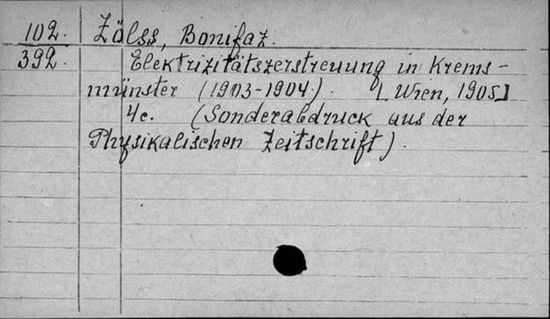 102. Zölss, Bonifaz.
392. Elektrizitätszerstreuung in Krems-
münster (1903-1904). [Wien, 1905]
4c. (Sonderabdruck aus der
Physikalischen Zeitschrift).